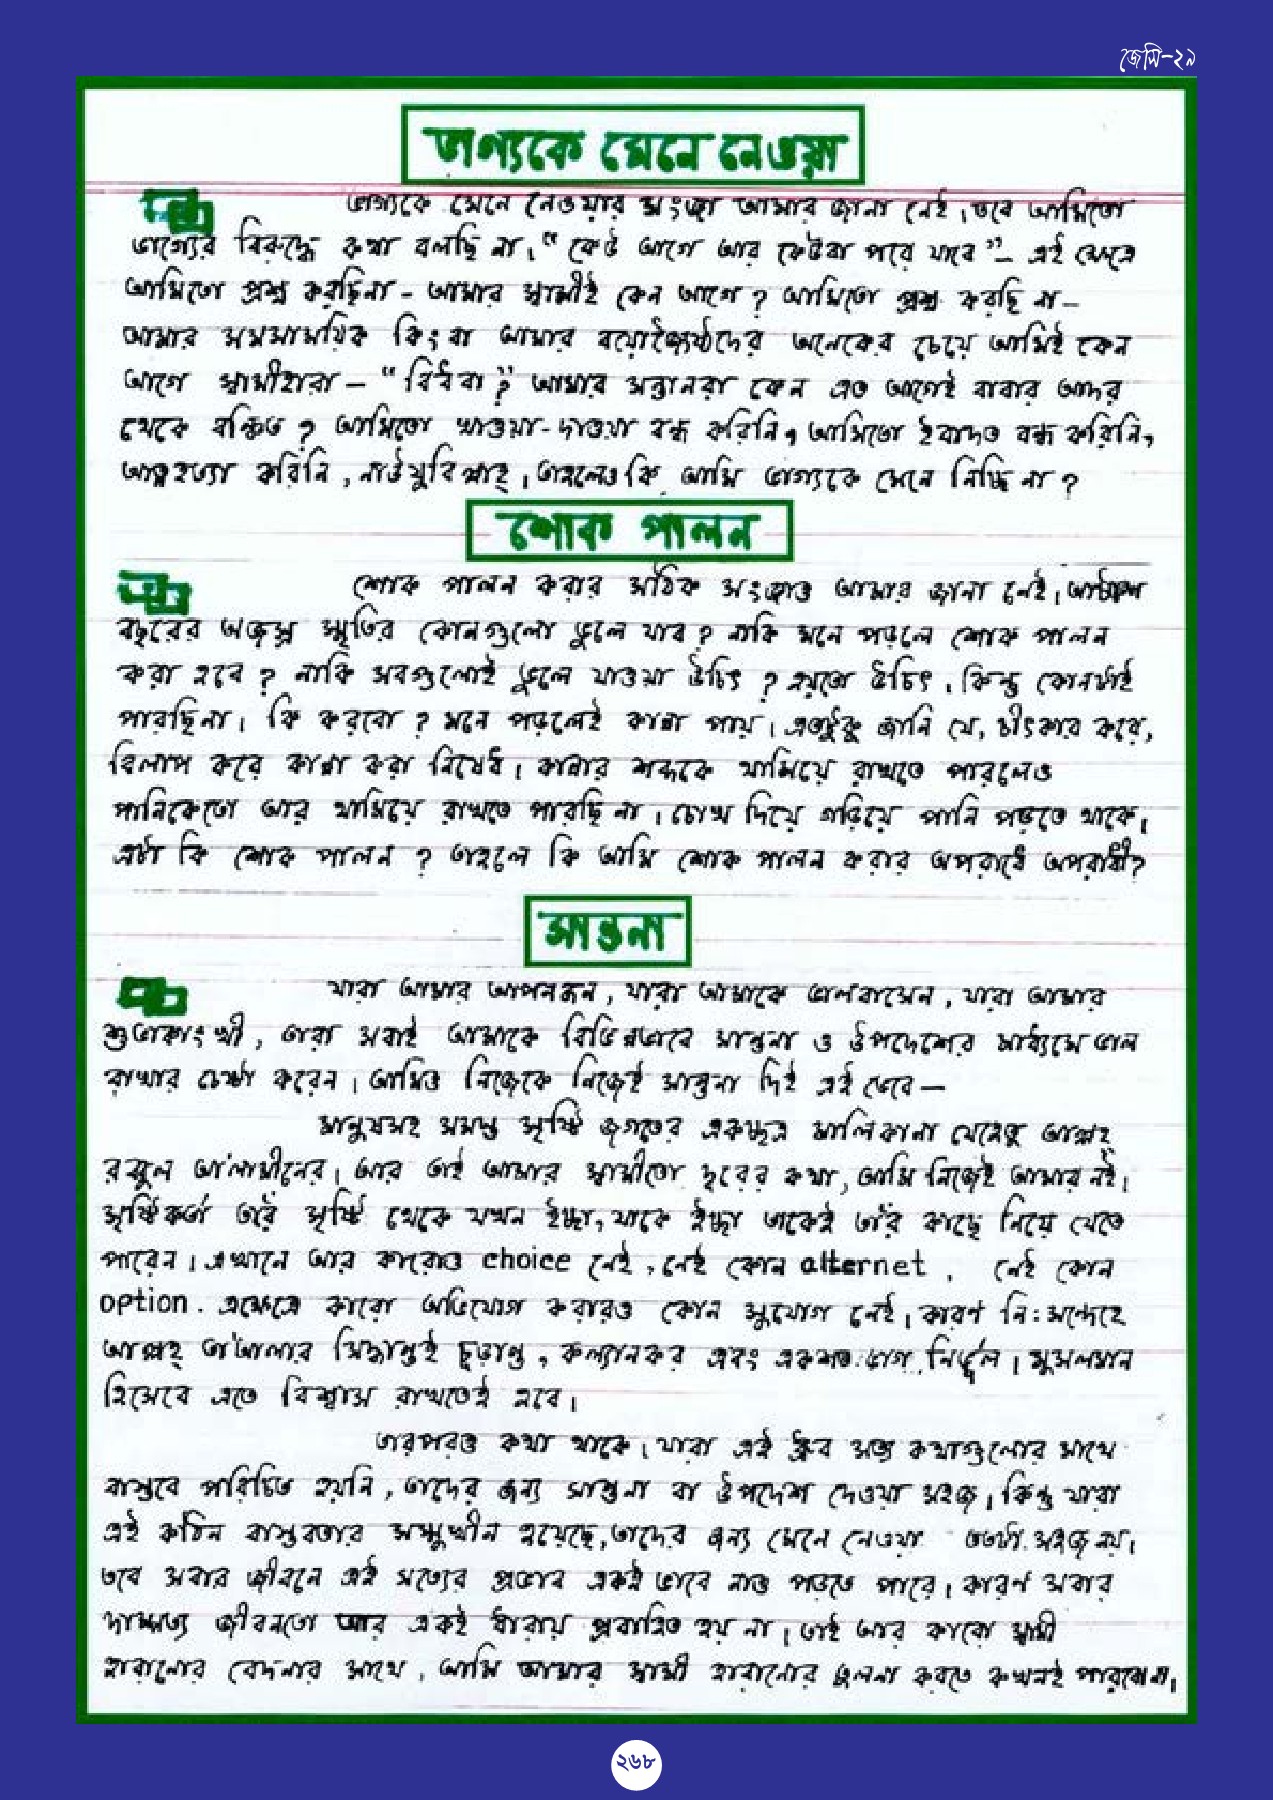 জেসি-২৯
ভাগ্যকে মেনে নেওয়া
ভাগ্যকে মেনে নেওয়ার সংজ্ঞা আমার জানা নেই। তবে আমিতো
ভাগ্যের বিরুদ্ধে কথা বলছি না। “কেউ আগে আর কেউবা পরে যাবে”- এই ক্ষেত্রে
আমিতো প্রশ্ন করছিনা - আমার স্বামীই কেন আগে? আমিতো প্রশ্ন করছি না-
আমার সমসাময়িক কিংবা আমার বয়োজ্যেষ্ঠদের অনেকের চেয়ে আমিই কেন
আগে স্বামীহারা - “বিধবা?” আমার সন্তানরা কেন এত আগেই বাবার আদর
থেকে বঞ্চিত? আমিতো খাওয়া-দাওয়া বন্ধ করিনি, আমিতো ইবাদত বন্ধ করিনি,
আত্মহত্যা করিনি, নাউযুবিল্লাহ্। তাহলেও কি আমি ভাগ্যকে মেনে নিচ্ছি না?
শোক পালন
শোক পালন করার সঠিক সংজ্ঞাও আমার জানা নেই। আটাশ
বছরের অজস্র স্মৃতির কোনগুলো ভুলে যাব? নাকি মনে পড়লে শোক পালন
করা হবে? নাকি সবগুলোই ভুলে যাওয়া উচিৎ? হয়তো উচিৎ। কিন্তু কোনটাই
পারছিনা। কি করবো? মনে পড়লেই কান্না পায়। এতটুকু জানি যে, চীৎকার করে,
বিলাপ করে কান্না করা নিষেধ। কান্নার শব্দকে থামিয়ে রাখতে পারলেও
পানিকেতো আর থামিয়ে রাখতে পারছি না। চোখ দিয়ে গড়িয়ে পানি পড়তে থাকে।
এটা কি শোক পালন? তাহলে কি আমি শোক পালন করার অপরাধে অপরাধী?
সান্তনা
যারা আমার আপনজন, যারা আমাকে ভালবাসেন, যারা আমার
শুভাকাংখী, তারা সবাই আমাকে বিভিন্নভাবে সান্তনা ও উপদেশের মাধ্যমে ভাল
রাখার চেষ্টা করেন। আমিও নিজেকে নিজেই সান্তনা দিই এই ভেবে—
মানুষসহ সমস্ত সৃষ্টি জগতের একচ্ছত্র মালিকানা যেহেতু আল্লাহ্
রব্বুল আ'লামীনের। আর তাই আমার স্বামীতো দূরের কথা, আমি নিজেই আমার নই।
সৃষ্টিকর্তা তাঁর সৃষ্টি থেকে যখন ইচ্ছা, যাকে ইচ্ছা তাকেই তাঁর কাছে নিয়ে যেতে
পারেন। এখানে আর কারোও choice নেই, নেই কোন alternet, নেই কোন
option. এক্ষেত্রে কারো অভিযোগ করারও কোন সুযোগ নেই। কারণ নি:সন্দেহে
আল্লাহ্ তা'আলার সিদ্ধান্তই চূড়ান্ত, কল্যানকর এবং একশত ভাগ নির্ভুল। মুসলমান
হিসেবে এতে বিশ্বাস রাখতেই হবে।
তারপরও কথা থাকে। যারা এই ধ্রুব সত্য কথাগুলোর সাথে
বাস্তবে পরিচিত হয়নি, তাদের জন্য সান্তনা বা উপদেশ দেওয়া সহজ। কিন্তু যারা
এই কঠিন বাস্তবতার সম্মুখীন হয়েছে, তাদের জন্য মেনে নেওয়া ততটা সহজ নয়।
তবে সবার জীবনে এই সত্যের প্রভাব একই ভাবে নাও পড়তে পারে। কারণ সবার
দাম্পত্য জীবনতো আর একই ধারায় প্রবাহিত হয় না। তাই আর কারো স্বামী
হারানোর বেদনার সাথে, আমি আমার স্বামী হারানোর তুলনা করতে কখনই পারবোনা।
২৬৮